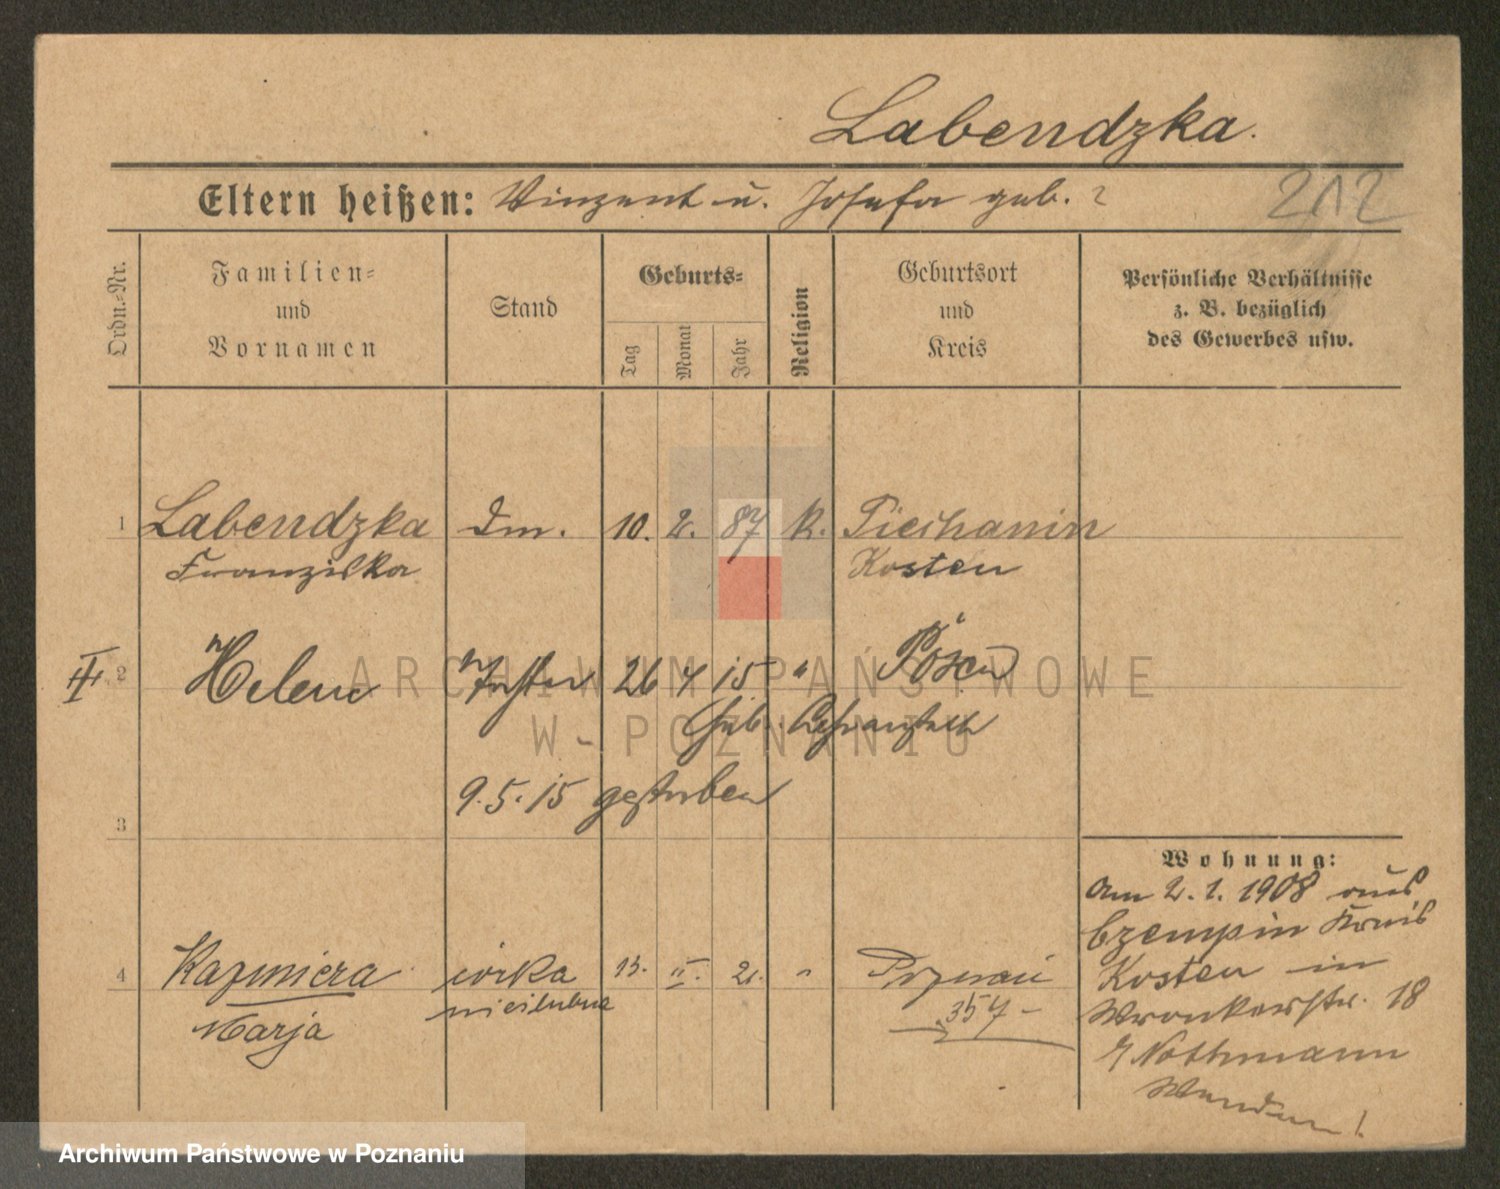 Labendzka.
Eltern heißen: Vinzent u. Josefa geb. ?
212
Ordn.-Nr.
Familien-
und
Vornamen
Stand
Geburts-
Tag
Monat
Jahr
Religion
Geburtsort
und
Kreis
Persönliche Verhältnisse
z. B. bezüglich
des Gewerbes usw.
1 Labendzka Dm. 10. 2. 87 k. Piechanin
Franziska Kosten
III 2 Helene Tochter 26 4 15 " Posen
Geb.
9.5.15 gestorben
3
Wohnung:
Am 2.1.1908 aus
Czempin Kreis
Kosten in
Wronkerstr. 18
b/ Nothmann
Wenden!
4 Kazmiera córka 13. II. 21. " Poznań
Marja nieślubna 357-
ARCHIWUM PAŃSTWOWE
W POZNANIU
Archiwum Państwowe w Poznaniu